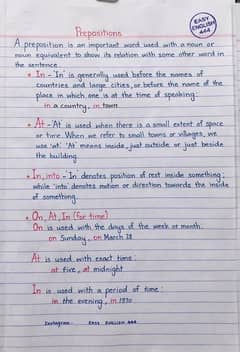 EASY
ENGLISH
444
Prepositions
A preposition is an important word used with a noun or
noun equivalent to show its relation with some other word in
the sentence.
• In - 'In' is generally used before the names of
countries and large cities, or before the name of the
place in which one is at the time of speaking:
in a country, in town
• At - 'At' is used when there is a small extent of space
or time. When we refer to small towns or villages, we
use 'at'. 'At' means inside, just outside or just beside
the building.
• In, into - 'In' denotes position of rest inside something;
while 'into' denotes motion or direction towards the inside
of something.
• On, At, In (for time)
On is used with the days of the week or month.
on Sunday, on March 28
At is used with exact time:
at five, at midnight
In is used with a period of time:
in the evening, in 1970
Instagram EASY ENGLISH 444